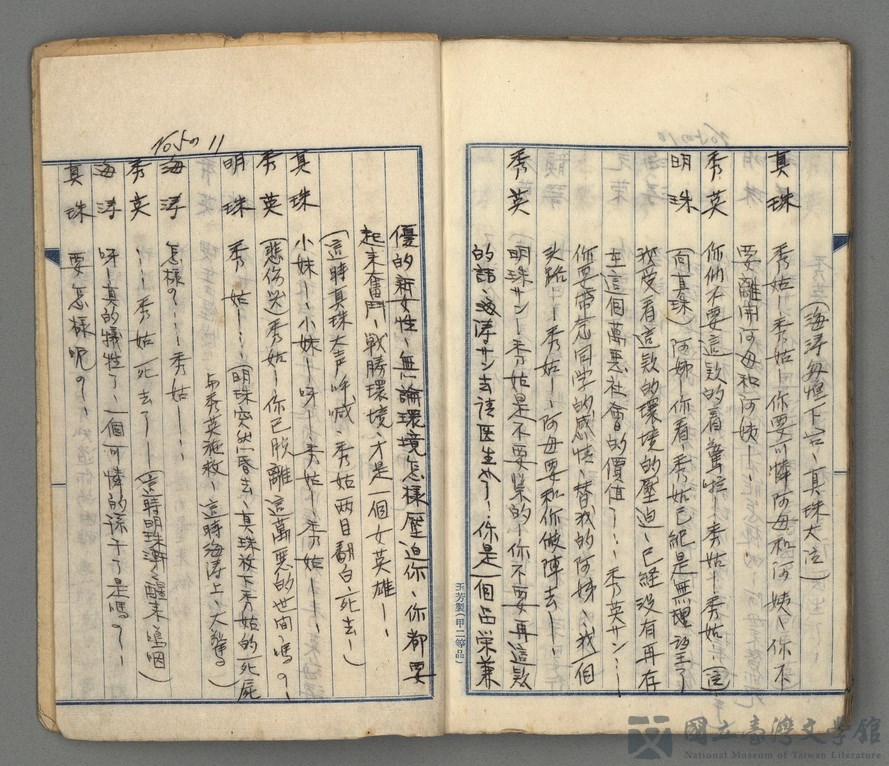 (海濤匆惶下台、真珠大泣)
真珠 秀姑！秀姑！你要可憐阿母和阿姨！你不
要離開阿母和阿姨！、
秀英 你們不要這款的看驚啦！秀姑！秀姑…(泣)
明珠 (向真珠)阿姊！你看、秀姑已經是無理望了
我受着這款的環境的壓迫、已經没有再存
在這個萬惡社會的價值了…、秀英サン…！
你要帶念同学的感情、替我的阿姊、、找一個
头路…！秀姑！、阿母要和你做陣去！！
秀英 明珠サン！秀姑是不要緊的！你不要再這款
的話、海濤サン去請医生了！、你是一個品栄兼
優的新女性、無論環境怎樣壓迫你、你都要
起来奮鬥、戦勝環境、才是一個女英雄！、
(這時真珠大声呼喊、秀姑两目翻白死去！)
真珠 小妹！…小妹！呀！秀姑！、秀姑！…、
秀英 (悲伤哭)秀姑！你已脱離這萬惡的世间嗎？、
明珠 秀姑！…、(明珠突然昏去、真珠放下秀姑的死屍
与秀英施救、這時海濤上、大驚。)
海濤 怎樣？…！秀姑！…、
秀英 …！秀姑死去了！、(這時明珠漸漸醒来嗚咽)
海濤 呀！真的犧牲了、一個可憐的孩子了是嗎？！、
真珠 要怎樣呢？！、
玉芳製(甲二等品)
國立臺灣文學館
National Museum of Taiwan Literature